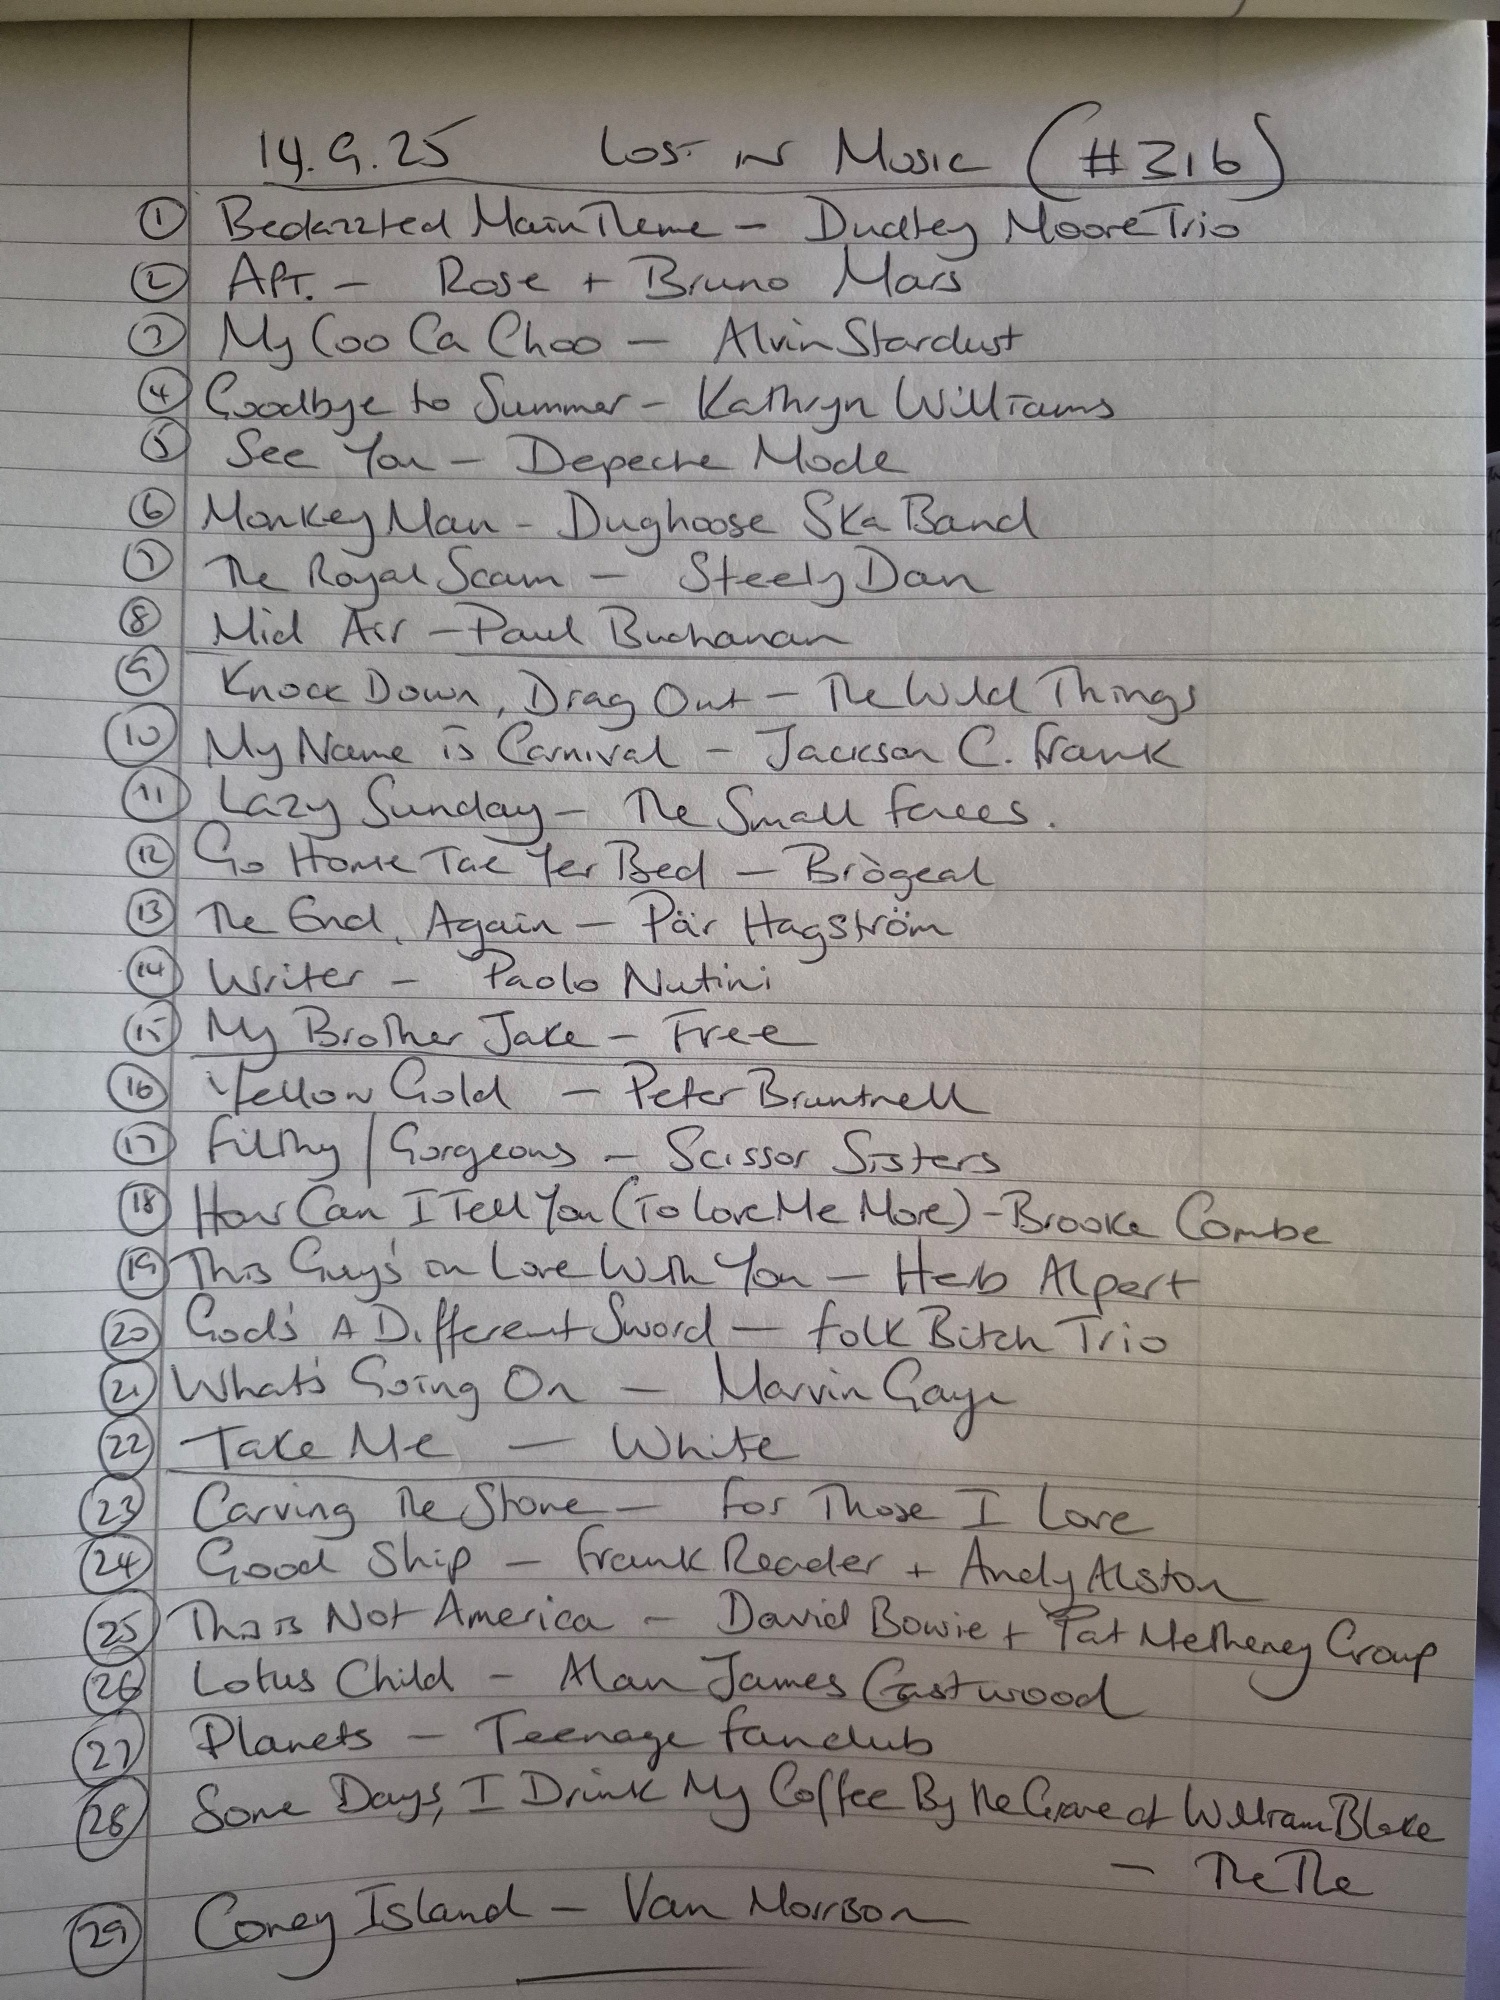 14.9.25 Lost in Music (#316)
① Bedazzled Main Theme – Dudley Moore Trio
② APT. – Rose + Bruno Mars
③ My Coo Ca Choo – Alvin Stardust
④ Goodbye to Summer – Kathryn Williams
⑤ See You – Depeche Mode
⑥ Monkey Man – Dughoose Ska Band
⑦ The Royal Scam – Steely Dan
⑧ Mid Air – Paul Buchanan
⑨ Knock Down, Drag Out – The Wild Things
⑩ My Name is Carnival – Jackson C. Frank
⑪ Lazy Sunday – The Small Faces.
⑫ Go Home Tae Yer Bed – Brògeal
⑬ The End, Again – Pär Hagström
⑭ Writer – Paolo Nutini
⑮ My Brother Jake – Free
⑯ Yellow Gold – Peter Bruntnell
⑰ Filthy/Gorgeous – Scissor Sisters
⑱ How Can I Tell You (To Love Me More) – Brooke Combe
⑲ This Guy's in Love With You – Herb Alpert
⑳ God's A Different Sword – Folk Bitch Trio
㉑ What's Going On – Marvin Gaye
㉒ Take Me – White
㉓ Carving The Stone – For Those I Love
㉔ Good Ship – Frank Reader + Andy Alston
㉕ This is Not America – David Bowie + Pat Metheney Group
㉖ Lotus Child – Alan James Eastwood
㉗ Planets – Teenage Fanclub
㉘ Some Days, I Drink My Coffee By the Grave of William Blake
– The The
㉙ Coney Island – Van Morrison